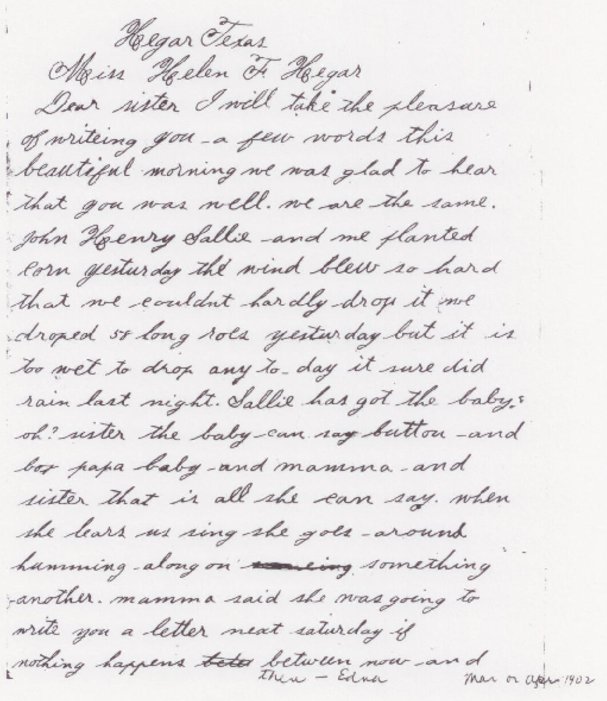 Hegar Texas
Miss Helen F Hegar
Dear sister I will take the pleasure
of writeing you a few words this
beautiful morning we was glad to hear
that you was well. we are the same.
John Henry Sallie and me planted
corn yesturday the wind blew so hard
that we couldnt hardly drop it we
droped 58 long roes yesturday but it is
too wet to drop any to-day it sure did
rain last night. Sallie has got the baby.
oh? sister the baby can say button and
box papa baby and mamma and
sister that is all she can say. when
she hears us sing she goes around
humming along on something
another. mamma said she was going to
write you a letter next saturday if
nothing happens between now and
then - Edna
Mar or Apr 1902